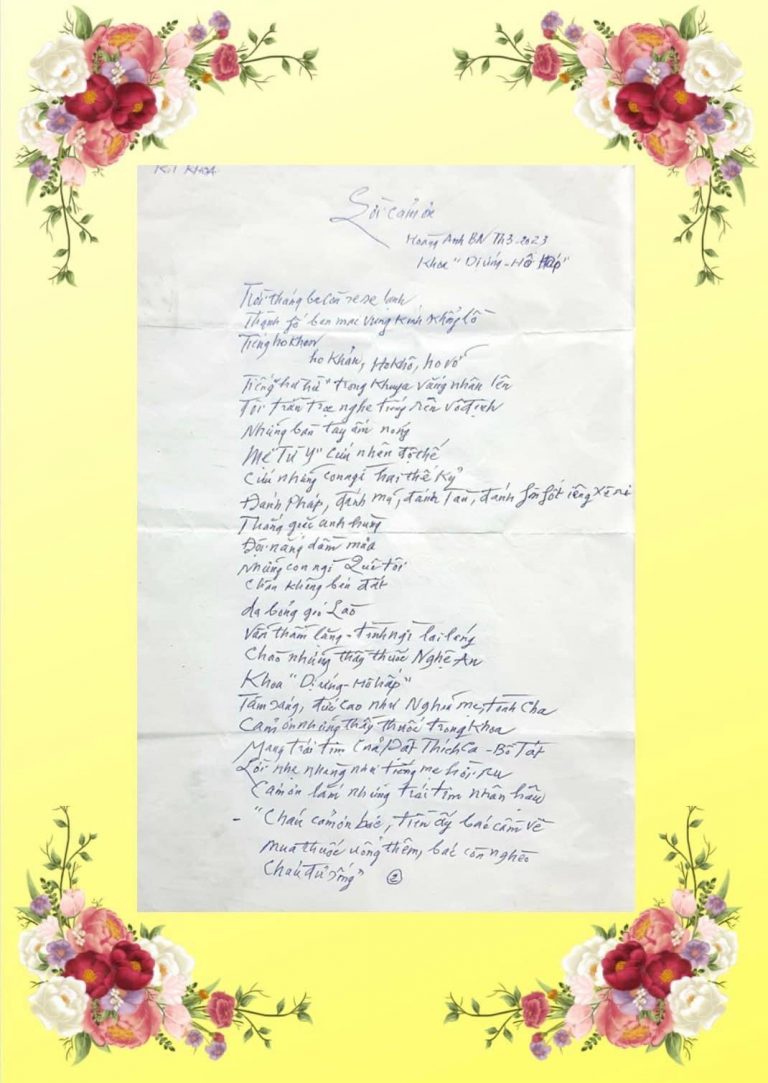 K/I KHOA
Lời cảm ơn
Hoàng Anh BN Th3-2023
Khoa "Dị ứng-Hô Hấp"
Trời tháng ba còn se se lạnh
Thành phố ban mai vương kính khổng lồ
Tiếng ho khan
ho khản, Ho khô, ho vỡ
Tiếng "hừ hừ" trong khuya văng nhân lên
Tôi trằn trọc nghe tiếng rên vô định
Những bàn tay ấm nóng
Mẹ "Từ y" cứu nhân độ thế
Cứu những con ngừi hai thế kỷ
Đánh Pháp, đánh mỹ, đánh Tàu, đánh
Thắng giặc anh hùng
Đội nắng dầm mưa
Những con ngừi Quê tôi
Chân không bén đất
da bỏng gió Lào
Vẫn thầm lặng - tình ngừi lai láng
Chào những thầy thuốc Nghệ An
Khoa "Dị ứng-Hô hấp"
Tâm sáng, đức cao như Nghĩa mẹ, tình Cha
Cảm ơn những thầy thuốc trong Khoa
Mang trái tim Của Phật Thích Ca - Bồ Tát
Lời nhẹ nhàng như tiếng mẹ hời ru
Cảm ơn lắm những trái tim nhân hậu
- "Cháu cảm ơn bác, tiền ấy bác cầm về
mua thuốc uống thêm, bác còn nghèo
Cháu đủ sống" 2